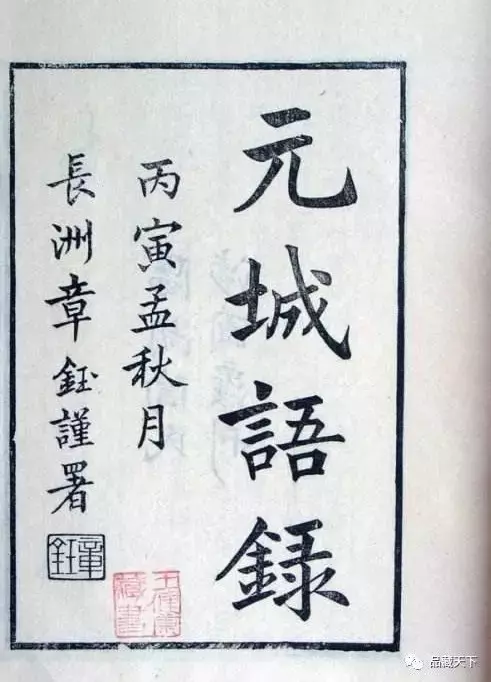 元城語錄
丙寅孟秋月
長洲章鈺謹署
章鈺
藏書
品藏天下